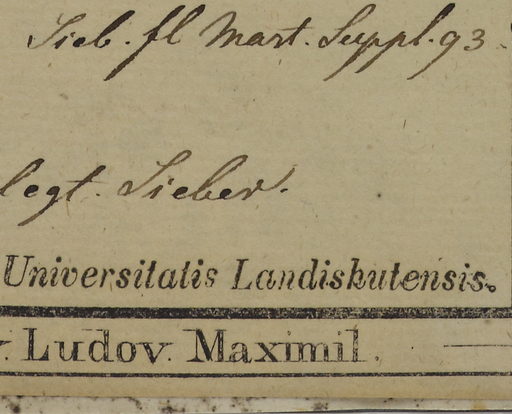 Sieb. fl Mart. Suppl. 93
legt. Sieber.
Universitatis Landishutensis.
Ludov. Maximil.